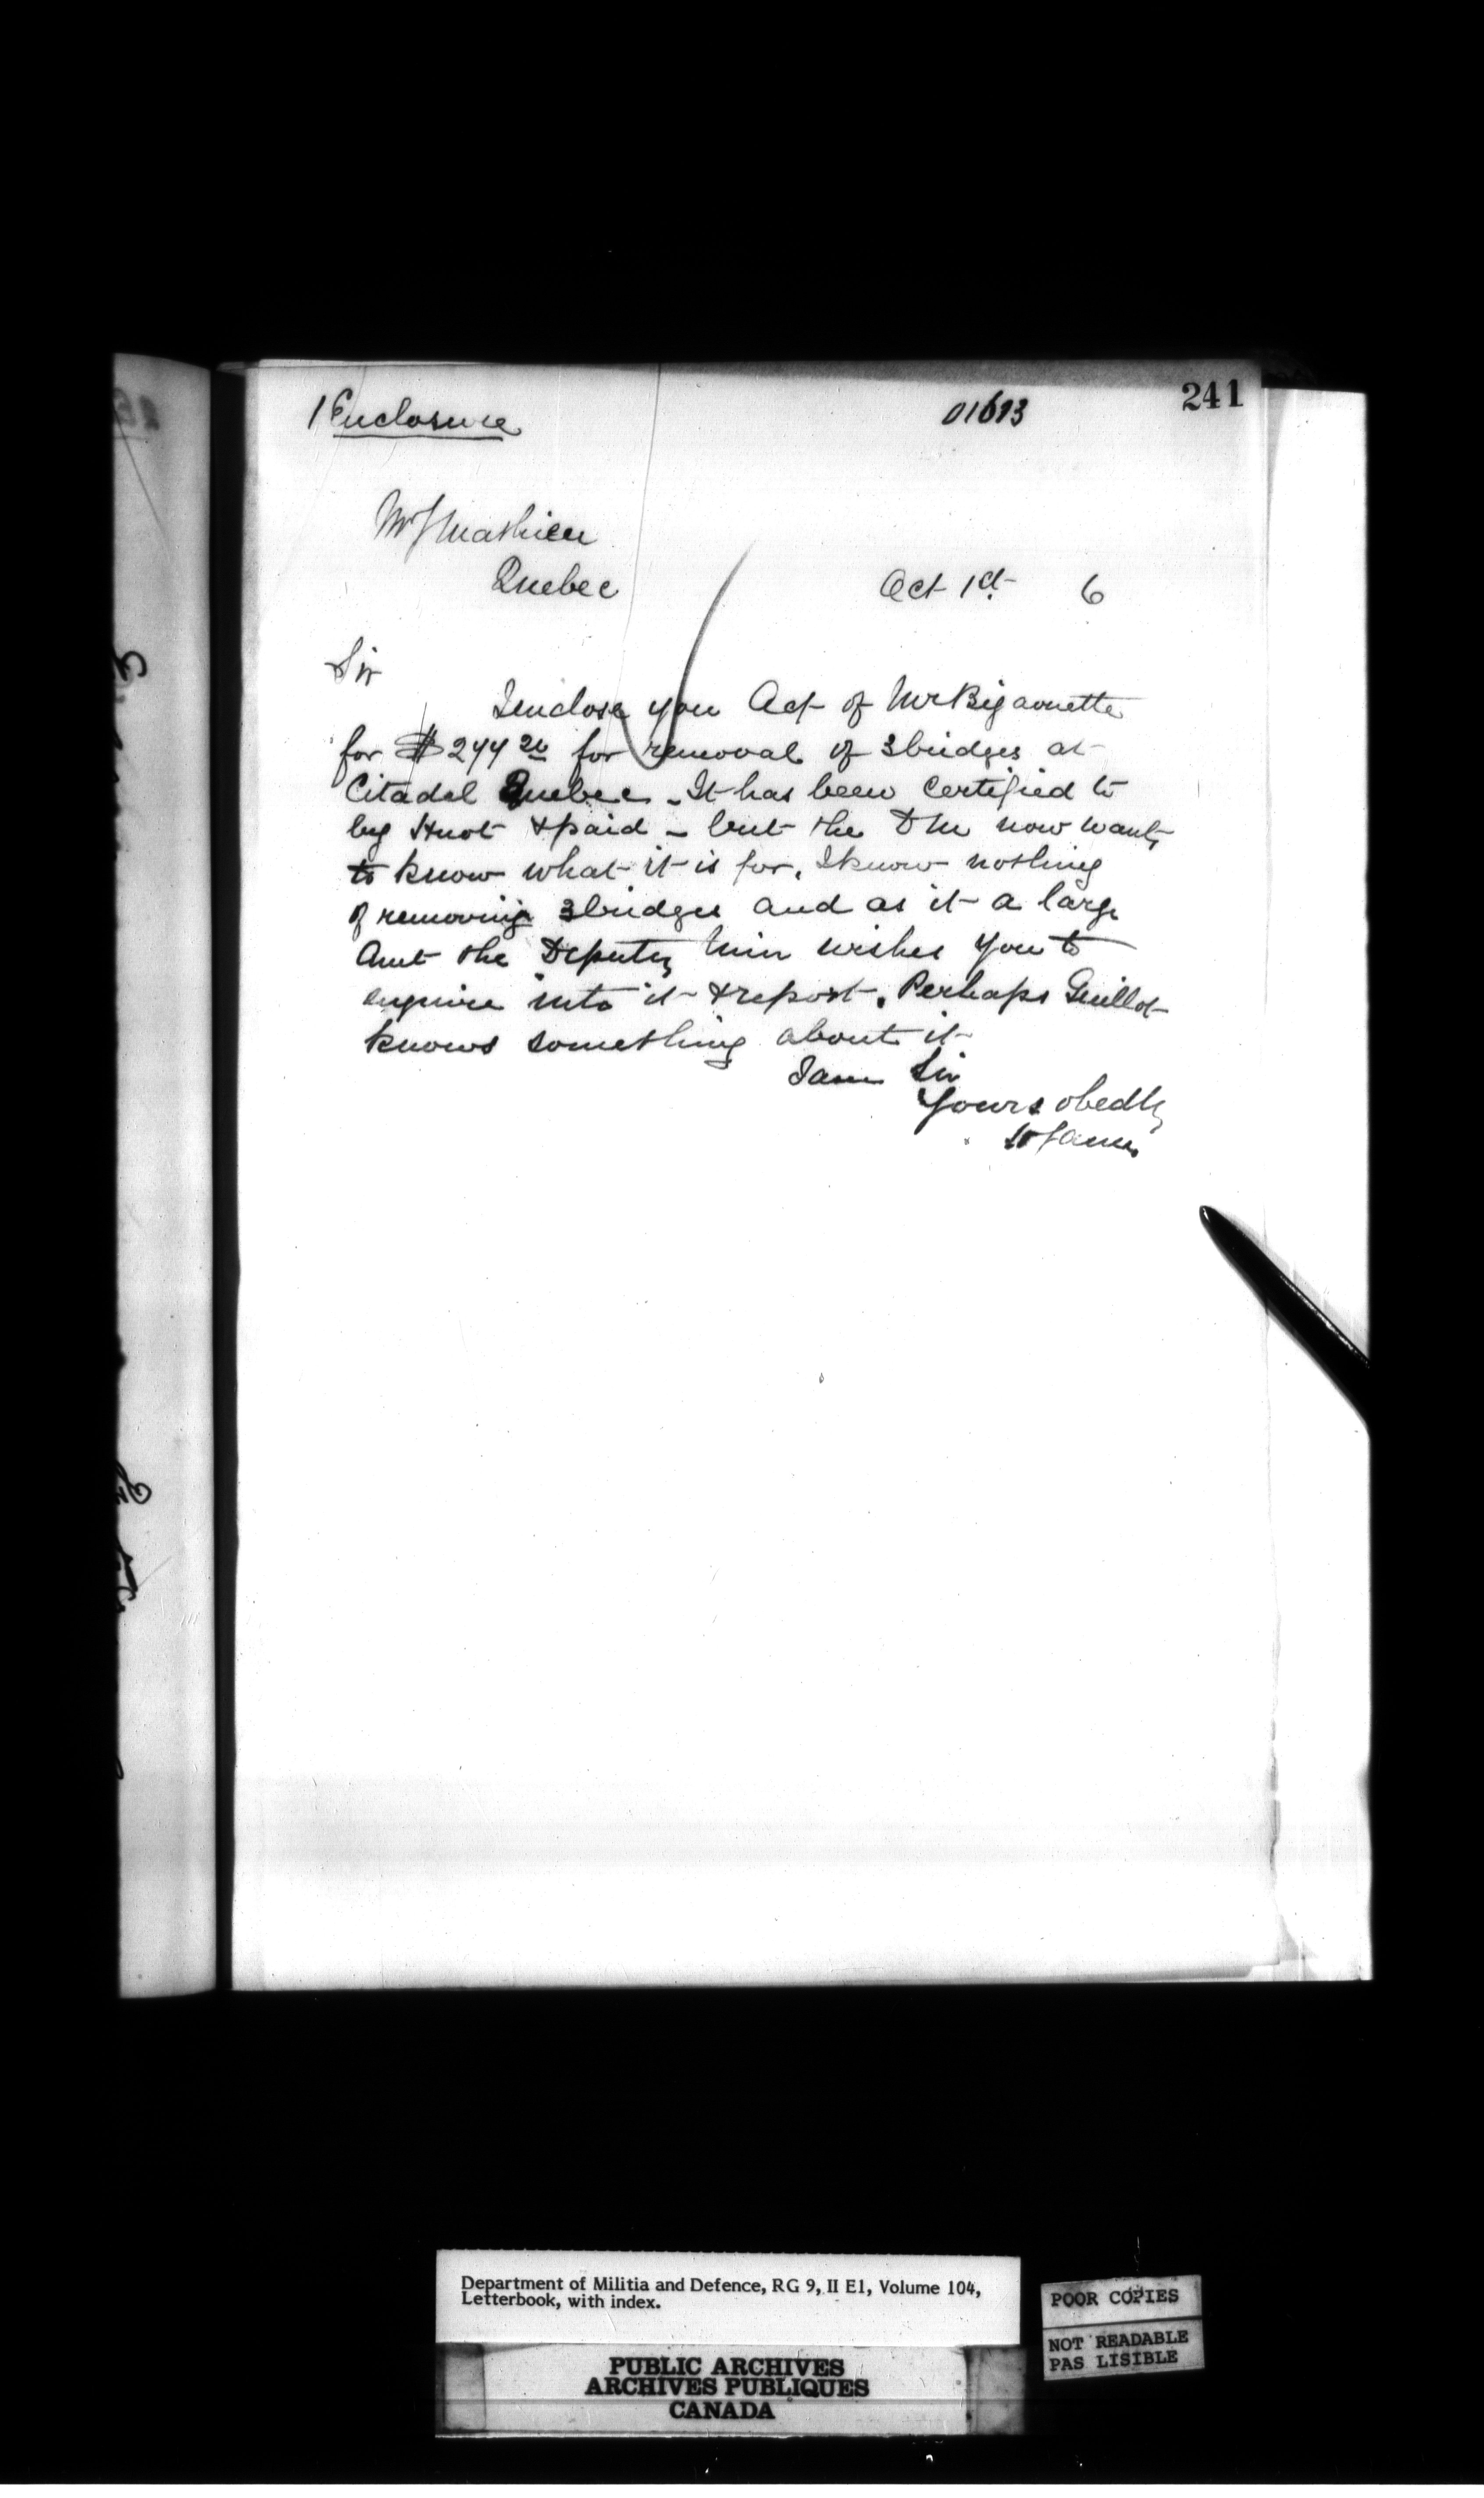 241
1 Enclosure
01613
Mr J Mathieu
Quebec
Oct 1st 6
Sir
I enclose you Act of Mr Bigaouette
for $244 20 for removal of 3 bridges at
Citadel Quebec - It has been certified to
by Huot & paid - but the DM now wants
to know what it is for, I know nothing
of removing 3 bridges and as it a large
Amt the Deputy Min wishes you to
enquire into it & report. Perhaps Guillot
knows something about it
I am Sir
Yours obedtly
Department of Militia and Defence, RG 9, II E1, Volume 104,
Letterbook, with index.
POOR COPIES
NOT READABLE
PAS LISIBLE
PUBLIC ARCHIVES
ARCHIVES PUBLIQUES
CANADA